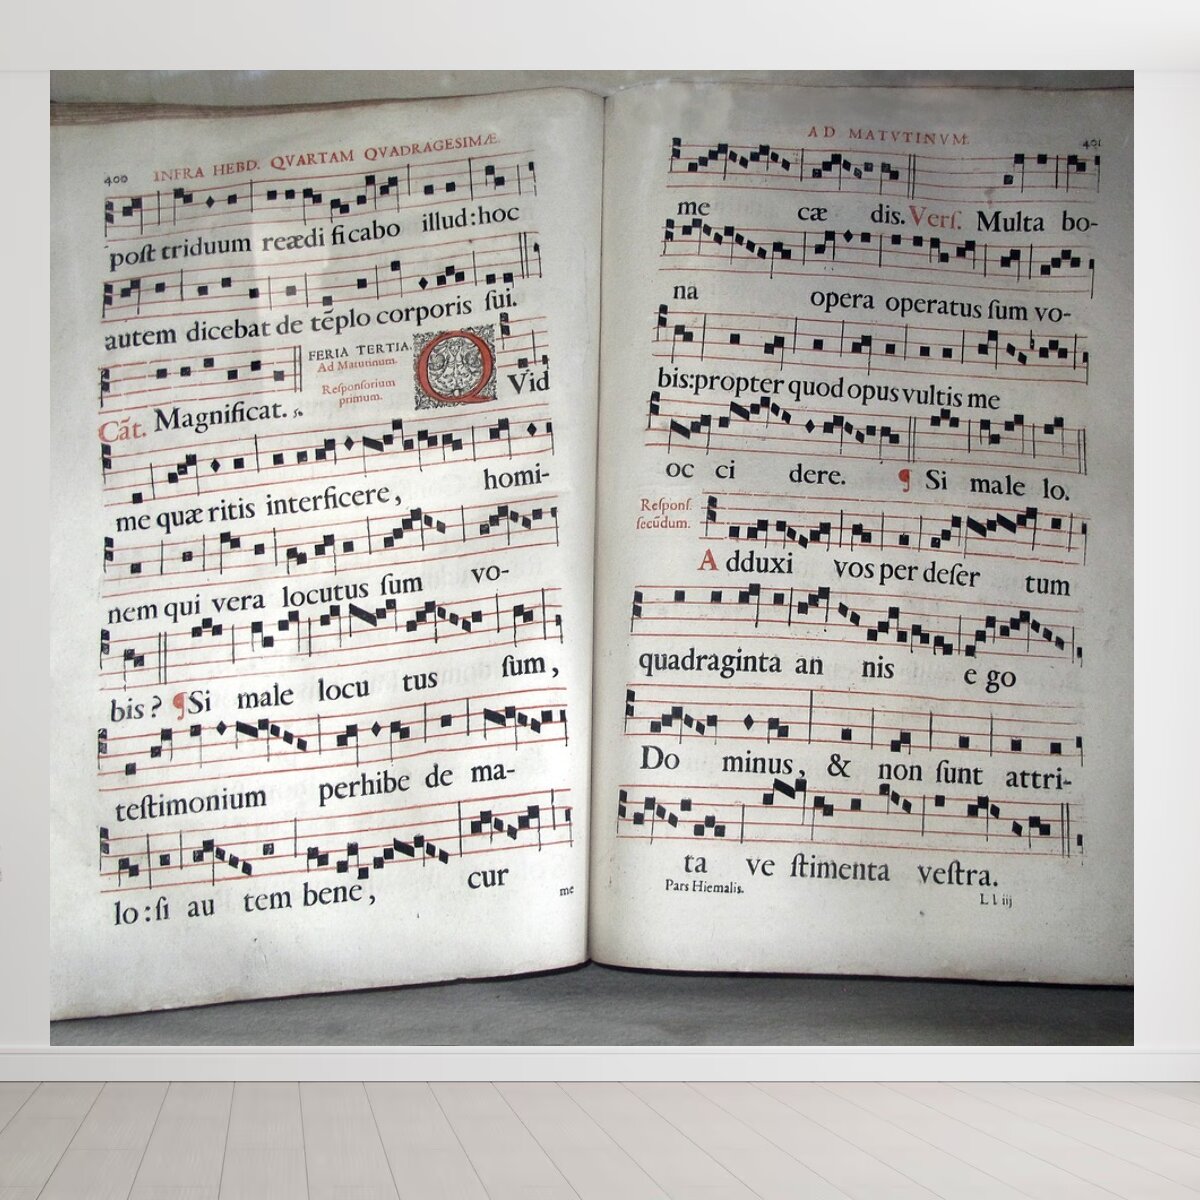 400 INFRA HEBD. QVARTAM QVADRAGESIMÆ.
poſt triduum reædi ficabo illud:hoc
autem dicebat de tẽplo corporis ſui.
Cãt. Magnificat.
FERIA TERTIA.
Ad Matutinum.
Reſponſorium
primum.
Q Vid
me quæ ritis interficere, homi-
nem qui vera locutus ſum vo-
bis? ¶Si male locu tus ſum,
teſtimonium perhibe de ma-
lo:ſi au tem bene, cur
me
AD MATVTINVM. 401
me cæ dis. Verſ. Multa bo-
na opera operatus ſum vo-
bis:propter quod opus vultis me
oc ci dere. ¶ Si male lo.
Reſponſ.
ſecũdum.
A dduxi vos per deſer tum
quadraginta an nis e go
Do minus, & non ſunt attri-
ta ve ſtimenta veſtra.
Pars Hiemalis.
L l iij